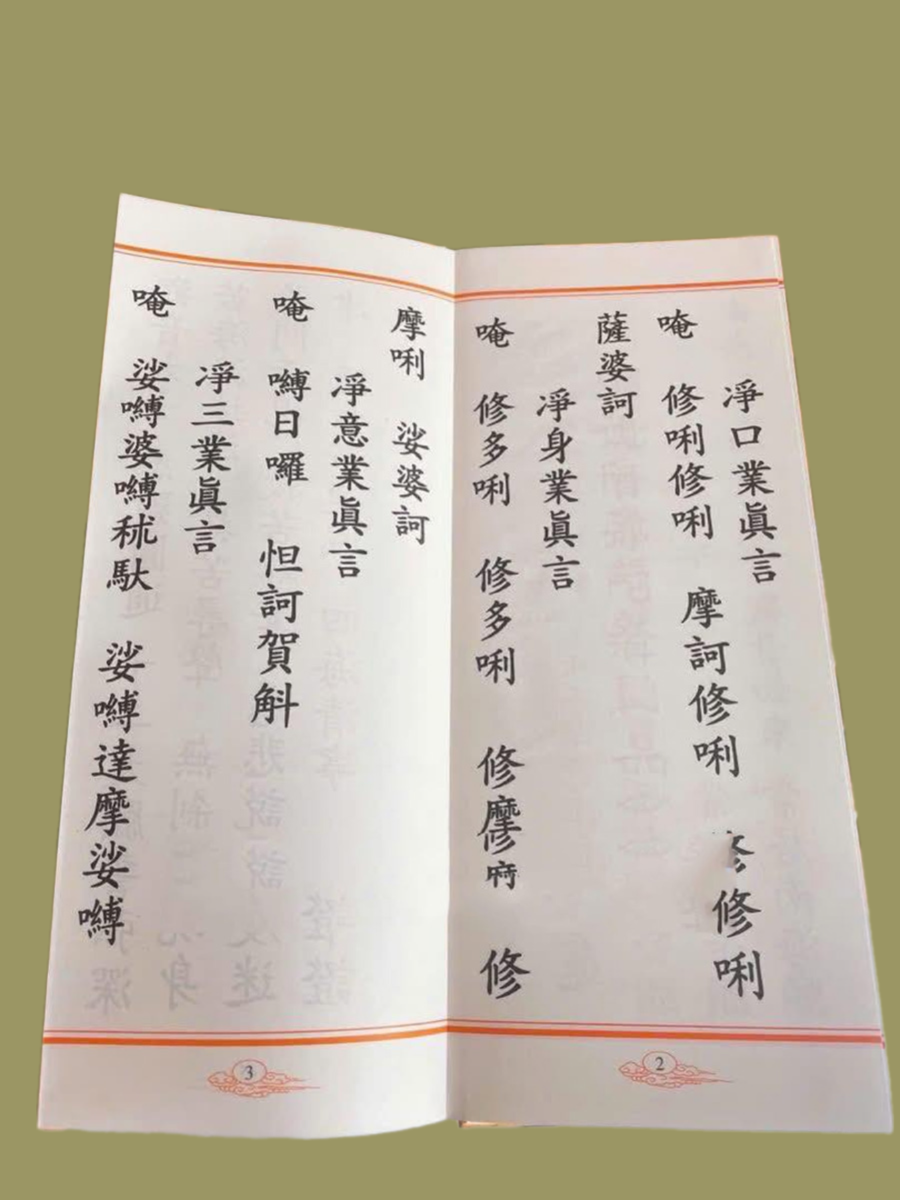 淨口業眞言
唵 修唎修唎 摩訶修唎 修修唎
薩婆訶
淨身業眞言
唵 修多唎 修多唎 修摩修 修
2
摩唎 娑婆訶
淨意業眞言
唵 嚩日囉 怛訶賀斛
淨三業眞言
唵 娑嚩婆嚩秫馱 娑嚩達摩娑嚩
3